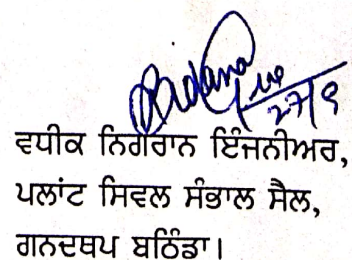 27/9
ਵਧੀਕ ਨਿਗਰਾਨ ਇੰਜਨੀਅਰ,
ਪਲਾਂਟ ਸਿਵਲ ਸੰਭਾਲ ਸੈਲ,
ਗਨਦਥਪ ਬਠਿੰਡਾ।